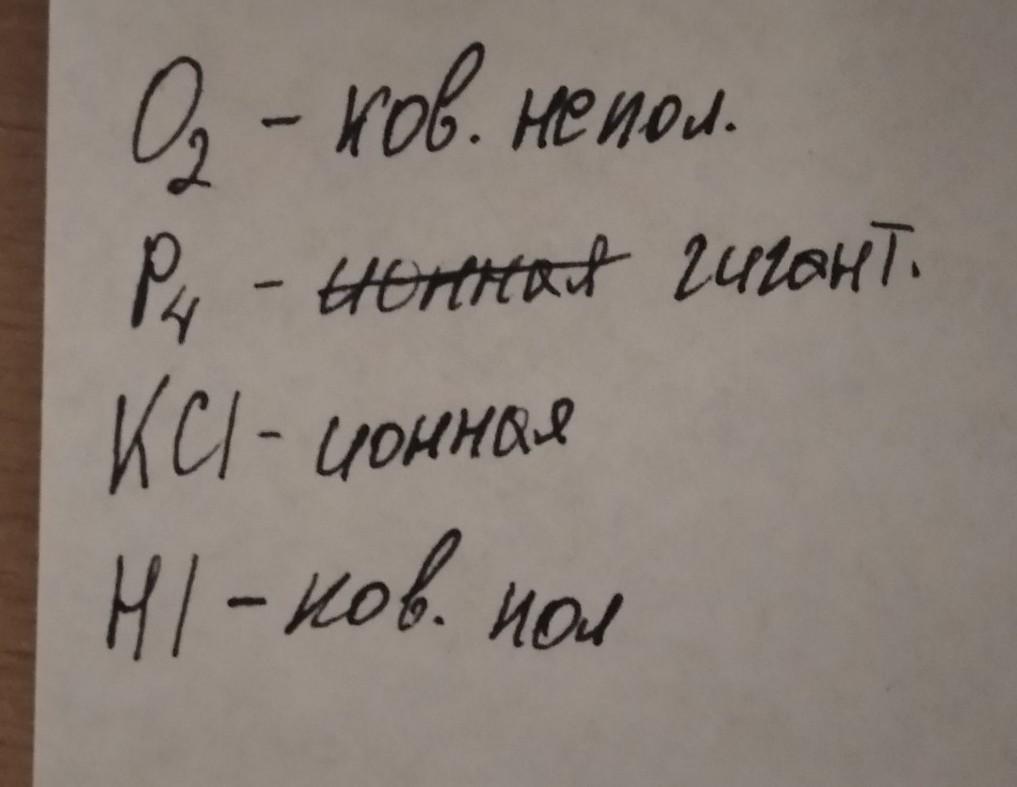 O₂ - ков. непол.
P₄ - ионная гигант.
KCl - ионная
HI - ков. пол